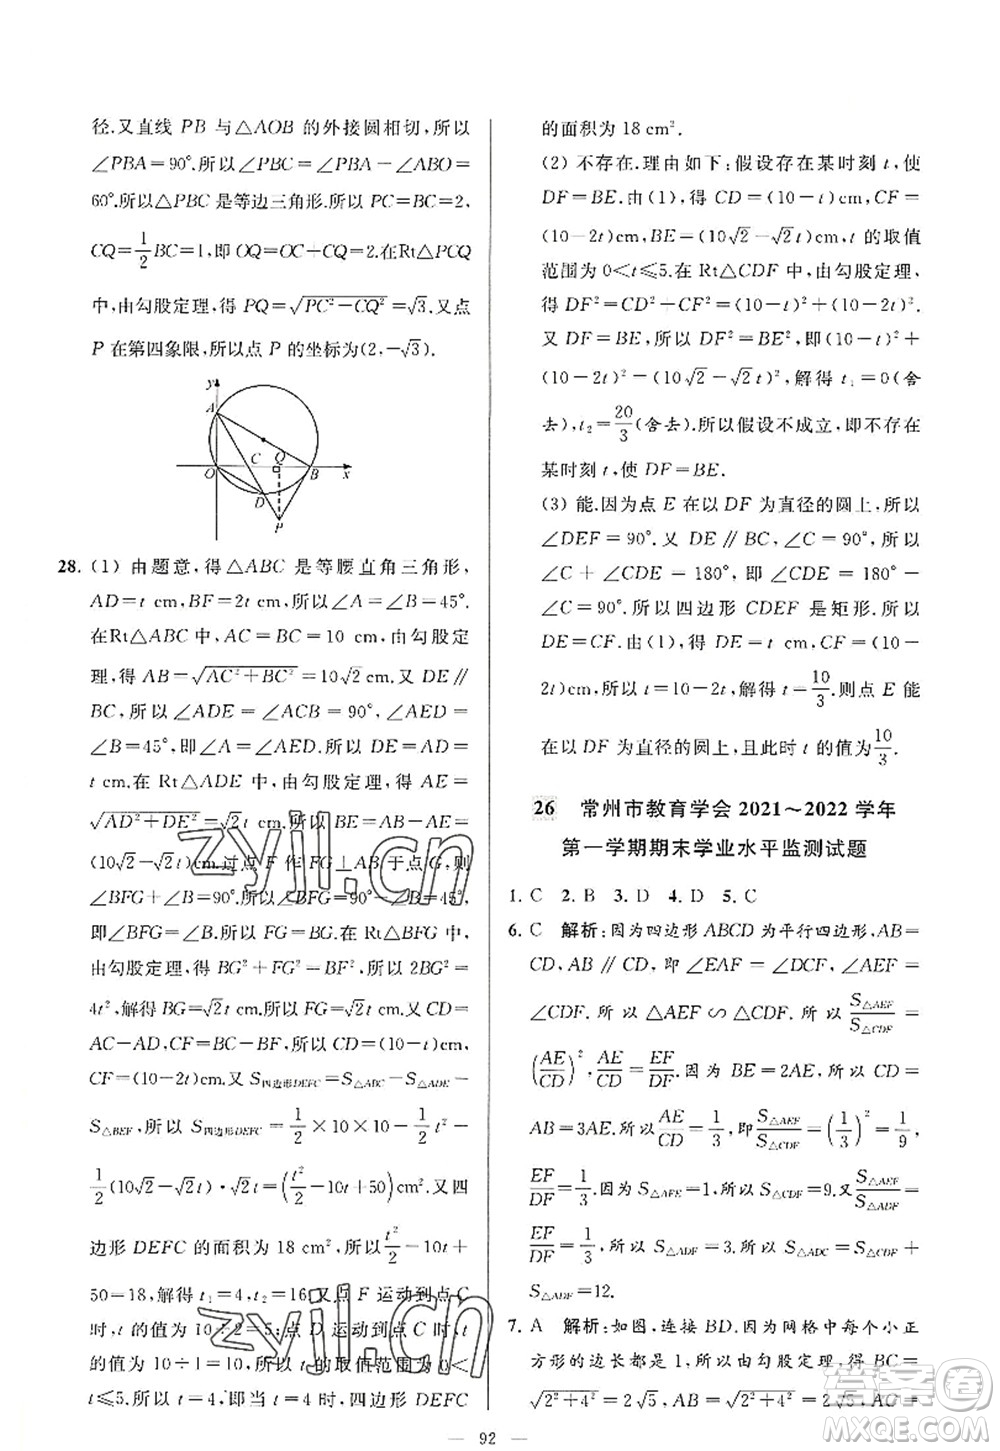 径.又直线 PB 与△AOB 的外接圆相切,所以
∠PBA=90°.所以∠PBC=∠PBA-∠ABO=
60°.所以△PBC是等边三角形.所以PC=BC=2,
CQ=1/2BC=1,即 OQ=OC+CQ=2.在Rt△PCQ
中,由勾股定理,得 PQ=√(PC²-CQ²)=√3.又点
P 在第四象限,所以点 P 的坐标为(2,-√3).
y
A
C Q
O B x
D
P
28. (1) 由题意,得△ABC 是等腰直角三角形,
AD=t cm,BF=2t cm,所以∠A=∠B=45°.
在Rt△ABC 中,AC=BC=10 cm,由勾股定
理,得 AB=√(AC²+BC²)=10√2 cm.又 DE∥
BC,所以∠ADE=∠ACB=90°,∠AED=
∠B=45°,即∠A=∠AED.所以 DE=AD=
t cm.在 Rt△ADE 中,由勾股定理,得 AE=
√(AD²+DE²)=√2t cm.过点 F 作 FG⊥AB,
所以∠BFG=90°-∠B=45°,
即∠BFG=∠B.所以 FG=BG.在Rt△BFG中,
由勾股定理,得 BG²+FG²=BF²,所以 2BG²=
4t²,解得 BG=√2t cm.所以FG=√2t cm.又CD=
AC-AD,CF=BC-BF,所以 CD=(10-t)cm,
CF=(10-2t)cm.又 S四边形DEFC=S△ABC-S△ADE-
S△BEF,所以 S四边形DEFC=1/2×10×10-1/2t²-
1/2(10√2-√2t)·√2t=(t²/2-10t+50)cm².又四
边形 DEFC 的面积为 18 cm²,所以t²/2-10t+
50=18,解得 t₁=4,t₂=16.又点 F 运动到点 C
时,t的值为 10÷2=5;点 D 运动到点 C 时,t
的值为 10÷1=10,所以 t 的取值范围为 0<
t⩽5.所以 t=4,即当 t=4 时,四边形 DEFC
的面积为 18 cm².
(2) 不存在.理由如下:假设存在某时刻 t,使
DF=BE.由(1),得 CD=(10-t)cm,CF=
(10-2t)cm,BE=(10√2-√2t)cm,t 的取值
范围为 0<t⩽5.在 Rt△CDF 中,由勾股定理,
得 DF²=CD²+CF²=(10-t)²+(10-2t)².
又 DF=BE,所以 DF²=BE²,即(10-t)²+
(10-2t)²=(10√2-√2t)²,解得 t₁=0(舍
去),t₂=20/3(舍去).所以假设不成立,即不存在
某时刻 t,使 DF=BE.
(3) 能.因为点 E 在以 DF 为直径的圆上,所以
∠DEF=90°.又 DE∥BC,∠C=90°,所以
∠C+∠CDE=180°,即∠CDE=180°-
∠C=90°.所以四边形 CDEF 是矩形.所以
DE=CF.由(1),得 DE=t cm,CF=(10-
2t)cm,所以 t=10-2t,解得 t=10/3.则点 E 能
在以 DF 为直径的圆上,且此时 t 的值为10/3.
26 常州市教育学会 2021~2022 学年
第一学期期末学业水平监测试题
1. C 2. B 3. D 4. D 5. C
6. C 解析:因为四边形 ABCD 为平行四边形,AB=
CD,AB∥CD,即∠EAF=∠DCF,∠AEF=
∠CDF.所以△AEF∽△CDF.所以S△AEF/S△CDF=
(AE/CD)²,AE/CD=EF/DF.因为 BE=2AE,所以
AB=3AE.所以AE/CD=1/3,即S△AEF/S△CDF=(1/3)²=1/9,
EF/DF=1/3.因为S△AFE=1,所以S△CDF=9.又S△AEF/S△ADF=
EF/DF=1/3,所以 S△ADF=3.所以 S△ADC=S△CDF+
S△ADF=12.
7. A 解析:如图,连接 BD.因为网格中每个小正
方形的边长都为1,所以由勾股定理,得 BC=
√(2²+4²)=2√5,AB=√(2²+4²)=2√5,AC=
92
zyjl.cn
zyjl.cn
答案圈
MXQE.COM